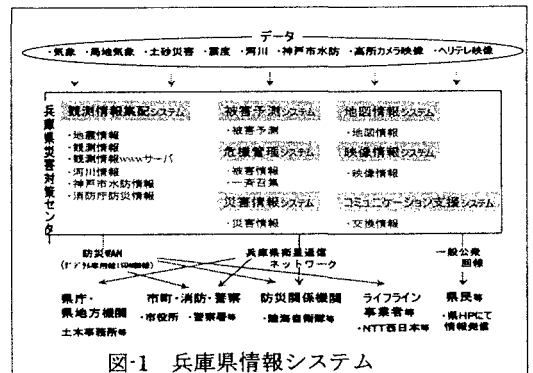 データ
・気象 ・局地気象 ・土砂災害 ・震度 ・河川 ・神戸市水防 ・高所カメラ映像 ・ヘリテレ映像
兵庫県災害対策センタ
観測情報集配システム
・地震情報
・観測情報
・観測情報wwwサーバ
・河川情報
・神戸市水防情報
・消防庁防災情報
被害予測システム
・被害予測
危機管理システム
・被害情報
・一斉召集
災害情報システム
・災害情報
地図情報システム
・地図情報
映像情報システム
・映像情報
コミュニケーション支援システム
・交換情報
防災WAN
兵庫県衛星通信
ネットワーク
一般公衆
回線
県庁・
県地方機関
土木事務所等
市町・消防・警察
・市役所 ・警察署等
防災関係機関
・陸海自衛隊等
ライフライン
事業者等
・NTT西日本等
県民等
・県HPにて
情報発信
図-1 兵庫県情報システム